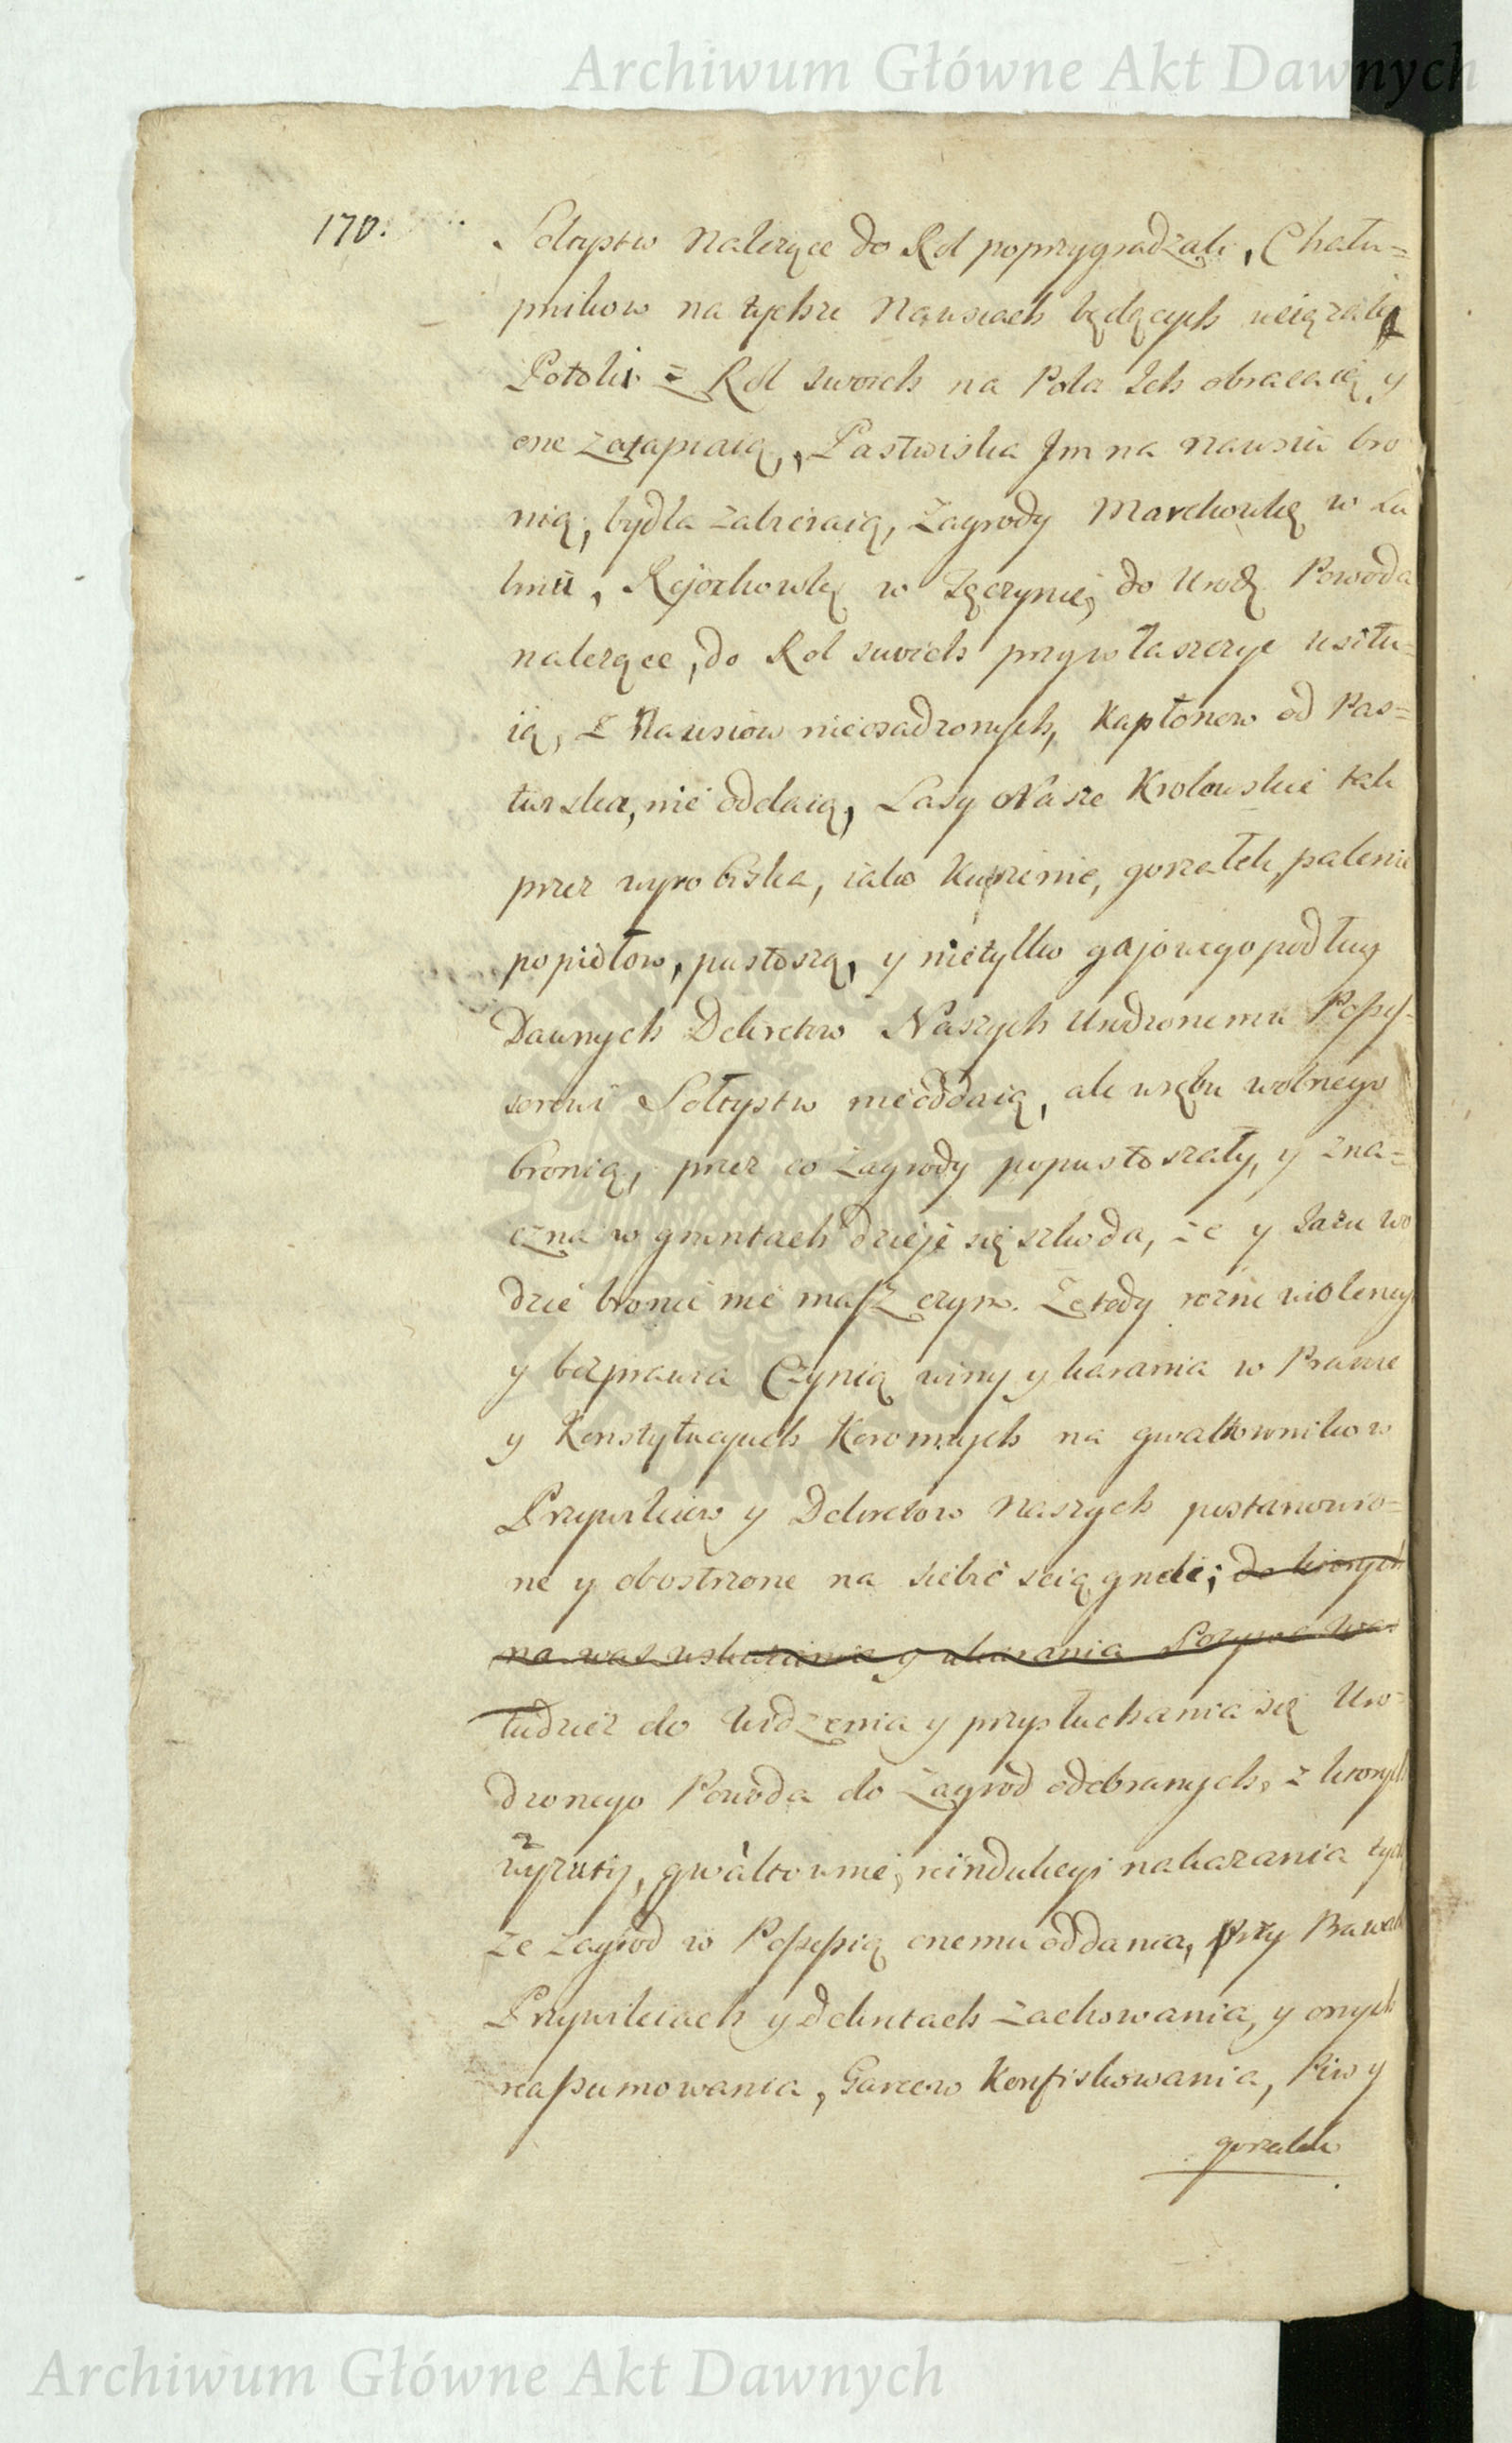 Archiwum Główne Akt Dawnych
170.
Sołtystw należące do Rol poprzygradzali, Chału=
pnikow na tychże Nawsiach będących uciążali,
Potoki z Rol swoich na Pola Ich obracaią y
one zatapiaią, Pastwiska Im na nawsiu bro
nią, bydła zabieraią, Zagrody Markowkę w Lu
bniu, Rejochowkę w Tęczynie, do Urodz Powoda
należące, do Rol swoich przywłaszczyć usiłu=
ią, z Nawsiow nieosadzonych, Kapłonow od Pas=
twiska, nie oddaią, Lasy Nasze Krolewskie tak
przez wyrobiska, iako Kurzenie, gorzałek, palenie
popiołow, pustoszą, y nietylko gajowego podług
Dawnych Dekretow Naszych Urodzonemu Possess=
sorowi Sołtystw nieoddaią, ale wrębu wolnego
bronią, przez co Zagrody popustoszały, y zna=
czna w gruntach dzieje się szkoda, że y Jazu wo
dzie bronić nie masz czym. Ze tedy rożne violencye
y bezprawia Czynią winy y karania w Prawie
y Konstytucyach Koronnych na gwałtownikow
Przywileiow y Dekretow Naszych postanowio=
ne y obostrzone na siebie sciągneli; do ktorych
na was wskazania y ukarania Pozywa was
tudzież do widzenia y przysłuchania się Uro=
dzonego Powoda do Zagrod odebranych, z ktorych
wyzuty, gwałtownie, reindukcyi nakazania tych
że Zagrod w Possessią onemu oddania, przy Prawach
Przywileiach y dekretach zachowania, y onych
reassumowania, Garcow Konfiskowania, Piw y
gorzałek
Archiwum Główne Akt Dawnych